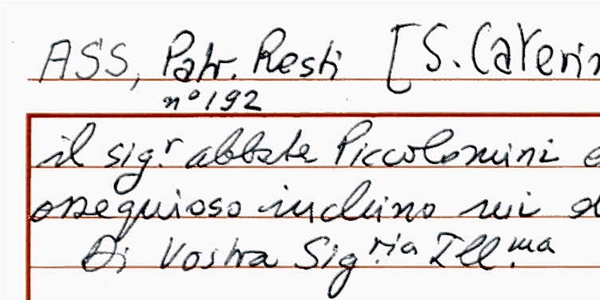 ASS, Patr. Resti [S. Caterin
n° 192
il sig.r abbate Piccolomini e
ossequioso inchino mi d
Di Vostra Sig.ria Ill.ma